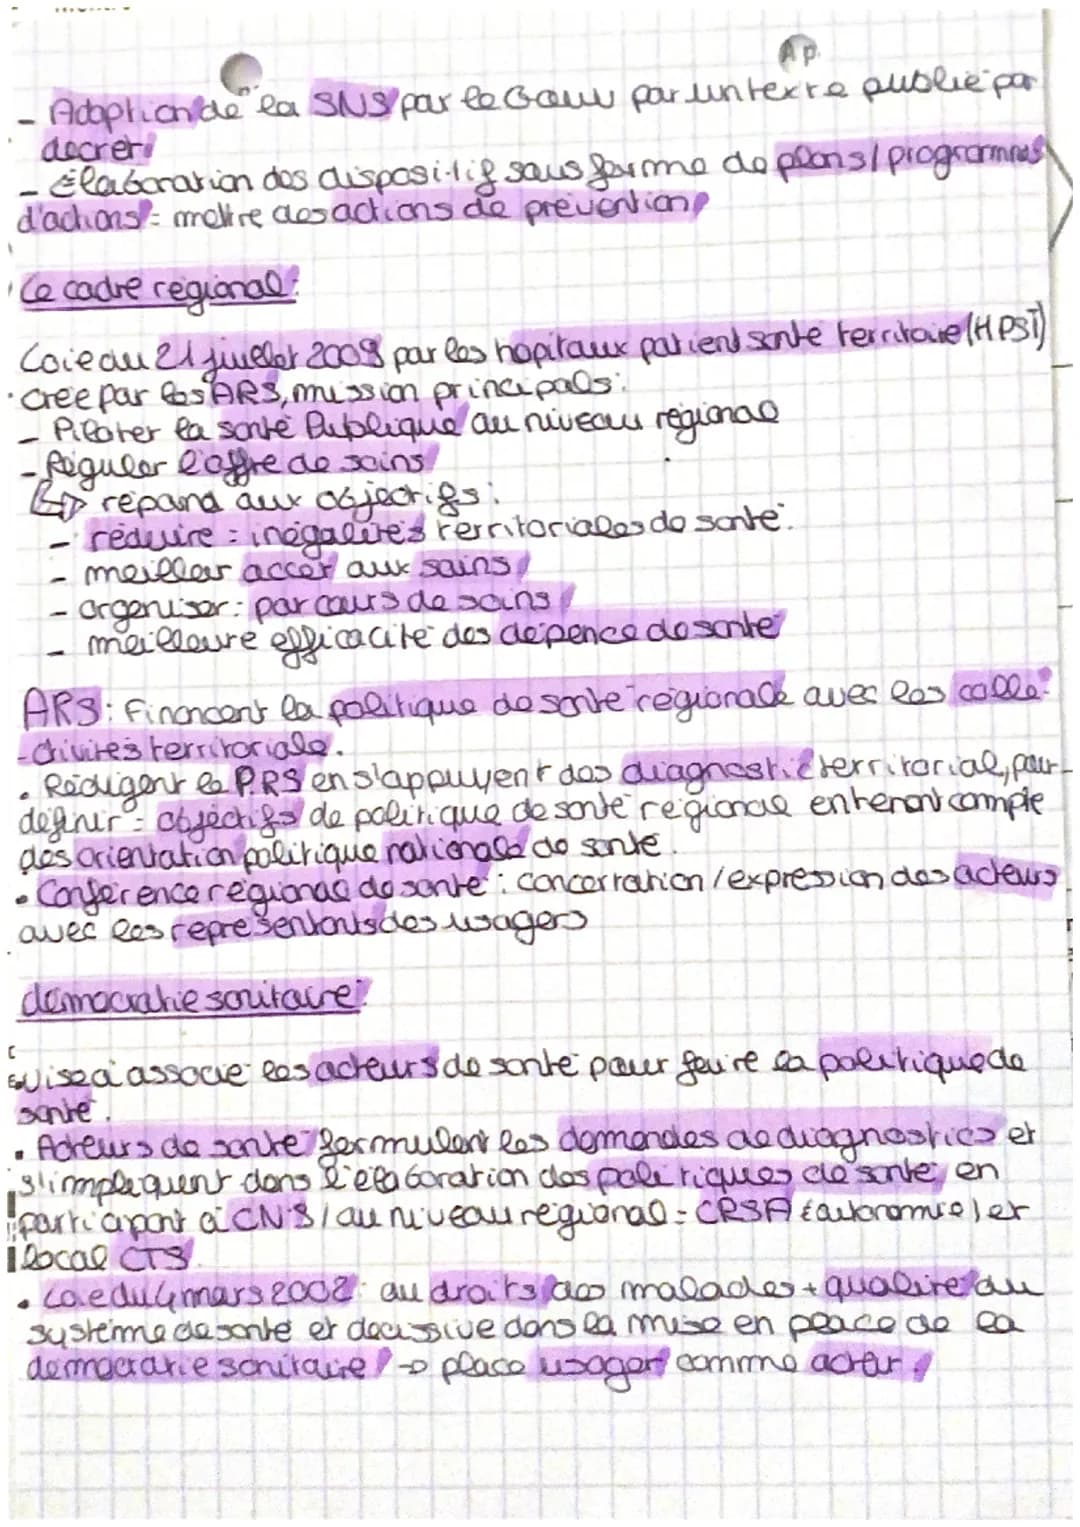 Ap.
- Adoption de la SNS par le Gouv par un texte publié par
decret
- Élaboration des dispositif sous forme de plans/programmes
d'actions = mettre des actions de prévention
Le cadre régional:
Loie du 21 juillet 2009 par les hopitaux patient santé territoire (HPST)
créé par les ARS, mission principals:
- Piloter la santé Publique au niveau régional
- Réguler l'offre de soins
↳ répond aux objectifs:
- réduire = inégalités territoriales de santé.
- meilleur accer aux soins
- organiser: parcours de soins
- meilleure efficacité des dépence de santé
ARS: Financent la politique de santé régionale avec les colle-
-ctivités territoriale.
• Rédigent le PRS en s'appuyent des diagnostic territorial, pour
définir = objectifs de politique de santé régionale en tenant compte
des orientation politique nationale de santé.
• Conférence régionale de santé: concertation/expression des acteurs
avec les représentants des usagers
démocratie sanitaire:
vise à associe les acteurs de santé pour faire la politique de
santé.
• Acteurs de santé formulent les demandes de diagnostics et
s'impliquent dans l'élaboration des politiques de santé, en
participant à CNS/au niveau régional = CRSA (autonomie) et
local CTS
• Loe du 4 mars 2002: au droits des malades + qualité du
système de santé et décissive dans la mise en place de la
démocratie sanitaire → place usager comme acteur